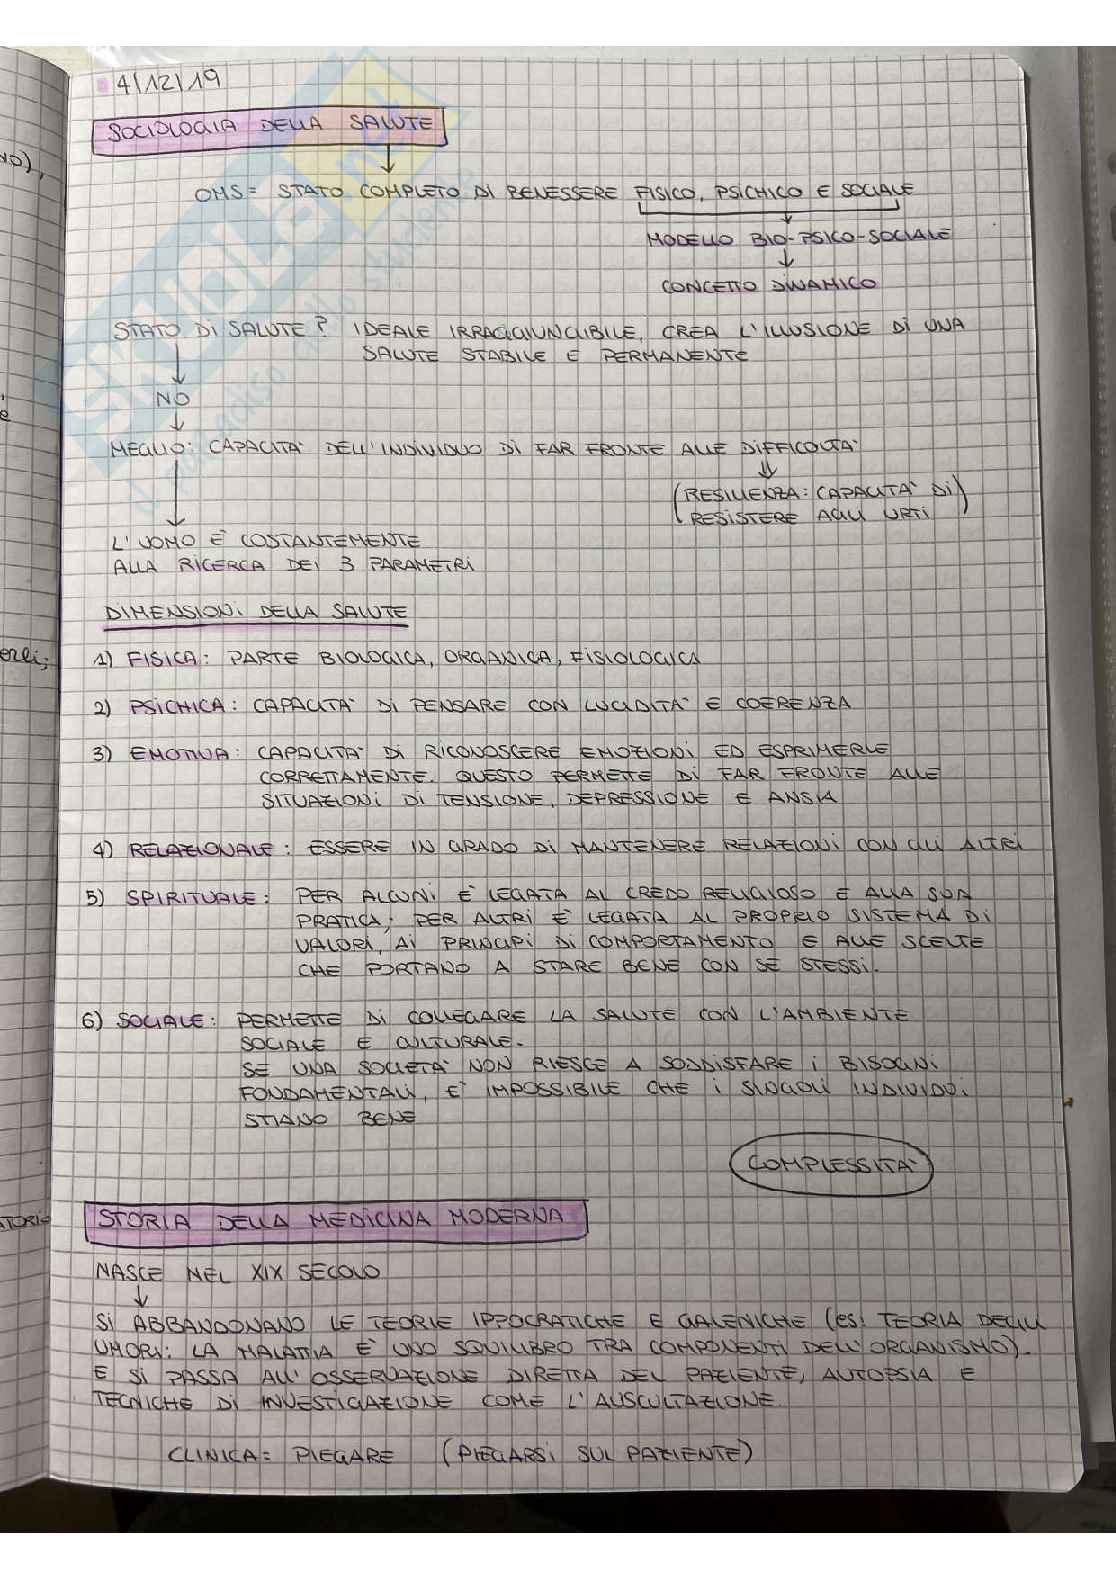 4/12/19
SOCIOLOGIA DELLA SALUTE
OMS = STATO COMPLETO DI BENESSERE FISICO, PSICHICO E SOCIALE
MODELLO BIO-PSICO-SOCIALE
CONCETTO DINAMICO
STATO DI SALUTE? IDEALE IRRAGGIUNGIBILE, CREA L'ILLUSIONE DI UNA
SALUTE STABILE E PERMANENTE
NO
MEGLIO: CAPACITA' DELL'INDIVIDUO DI FAR FRONTE ALLE DIFFICOLTA'
(RESILIENZA: CAPACITA' DI
RESISTERE AGLI URTI)
L'UOMO E' COSTANTEMENTE
ALLA RICERCA DEI 3 PARAMETRI
DIMENSIONI DELLA SALUTE
1) FISICA: PARTE BIOLOGICA, ORGANICA, FISIOLOGICA
2) PSICHICA: CAPACITA' DI PENSARE CON LUCIDITA' E COERENZA
3) EMOTIVA: CAPACITA' DI RICONOSCERE EMOZIONI ED ESPRIMERLE
CORRETTAMENTE. QUESTO PERMETTE DI FAR FRONTE ALLE
SITUAZIONI DI TENSIONE, DEPRESSIONE E ANSIA
4) RELAZIONALE: ESSERE IN GRADO DI MANTENERE RELAZIONI CON GLI ALTRI
5) SPIRITUALE: PER ALCUNI E' LEGATA AL CREDO RELIGIOSO E ALLA SUA
PRATICA; PER ALTRI E' LEGATA AL PROPRIO SISTEMA DI
VALORI, AI PRINCIPI DI COMPORTAMENTO E ALLE SCELTE
CHE PORTANO A STARE BENE CON SE STESSI.
6) SOCIALE: PERMETTE DI COLLEGARE LA SALUTE CON L'AMBIENTE
SOCIALE E CULTURALE.
SE UNA SOCIETA' NON RIESCE A SODDISFARE I BISOGNI
FONDAMENTALI, E' IMPOSSIBILE CHE I SINGOLI INDIVIDUI
STIANO BENE
COMPLESSITA'
STORIA DELLA MEDICINA MODERNA
NASCE NEL XIX SECOLO
SI ABBANDONANO LE TEORIE IPPOCRATICHE E GALENICHE (es: TEORIA DEGLI
UMORI: LA MALATTIA E' UNO SQUILIBRO TRA COMPONENTI DELL'ORGANISMO).
E SI PASSA ALL'OSSERVAZIONE DIRETTA DEL PAZIENTE, AUTOPSIA E
TECNICHE DI INVESTIGAZIONE COME L'AUSCULTAZIONE
CLINICA = PIEGARE (PIEGARSI SUL PAZIENTE)